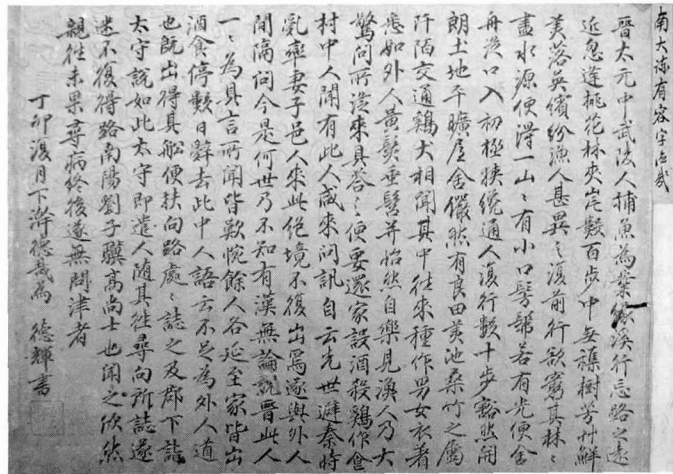 南大諫有容字德哉
晉太元中武陵人捕魚為業緣溪行忘路之遠
近忽逢桃花林夾岸數百步中無雜樹芳艸鮮
美落英繽紛漁人甚異之復前行欲窮其林〻
盡水源便得一山〻有小口髣髴若有光便舍
舟從口入初極狹纔通人復行數十步豁然開
朗土地平曠屋舍儼然有良田美池桑竹之屬
阡陌交通鷄犬相聞其中往來種作男女衣著
悉如外人黃髮垂髫并怡然自樂見漁人乃大
驚問所從來具答之便要還家設酒殺鷄作食
村中人聞有此人咸來問訊自云先世避秦時
乱率妻子邑人來此絕境不復出焉遂與外人
間隔問今是何世乃不知有漢無論魏晉此人
一〻為具言所聞皆歎惋餘人各延至家皆出
酒食停數日辭去此中人語云不足為外人道
也既出得其舩便扶向路處〻誌之及郡下詣
太守說如此太守即遣人隨其往尋向所誌遂
迷不復得路南陽劉子驥高尚士也聞之欣然
親往未果尋病終後遂無問津者
丁卯復月下澣德哉為 德輝書